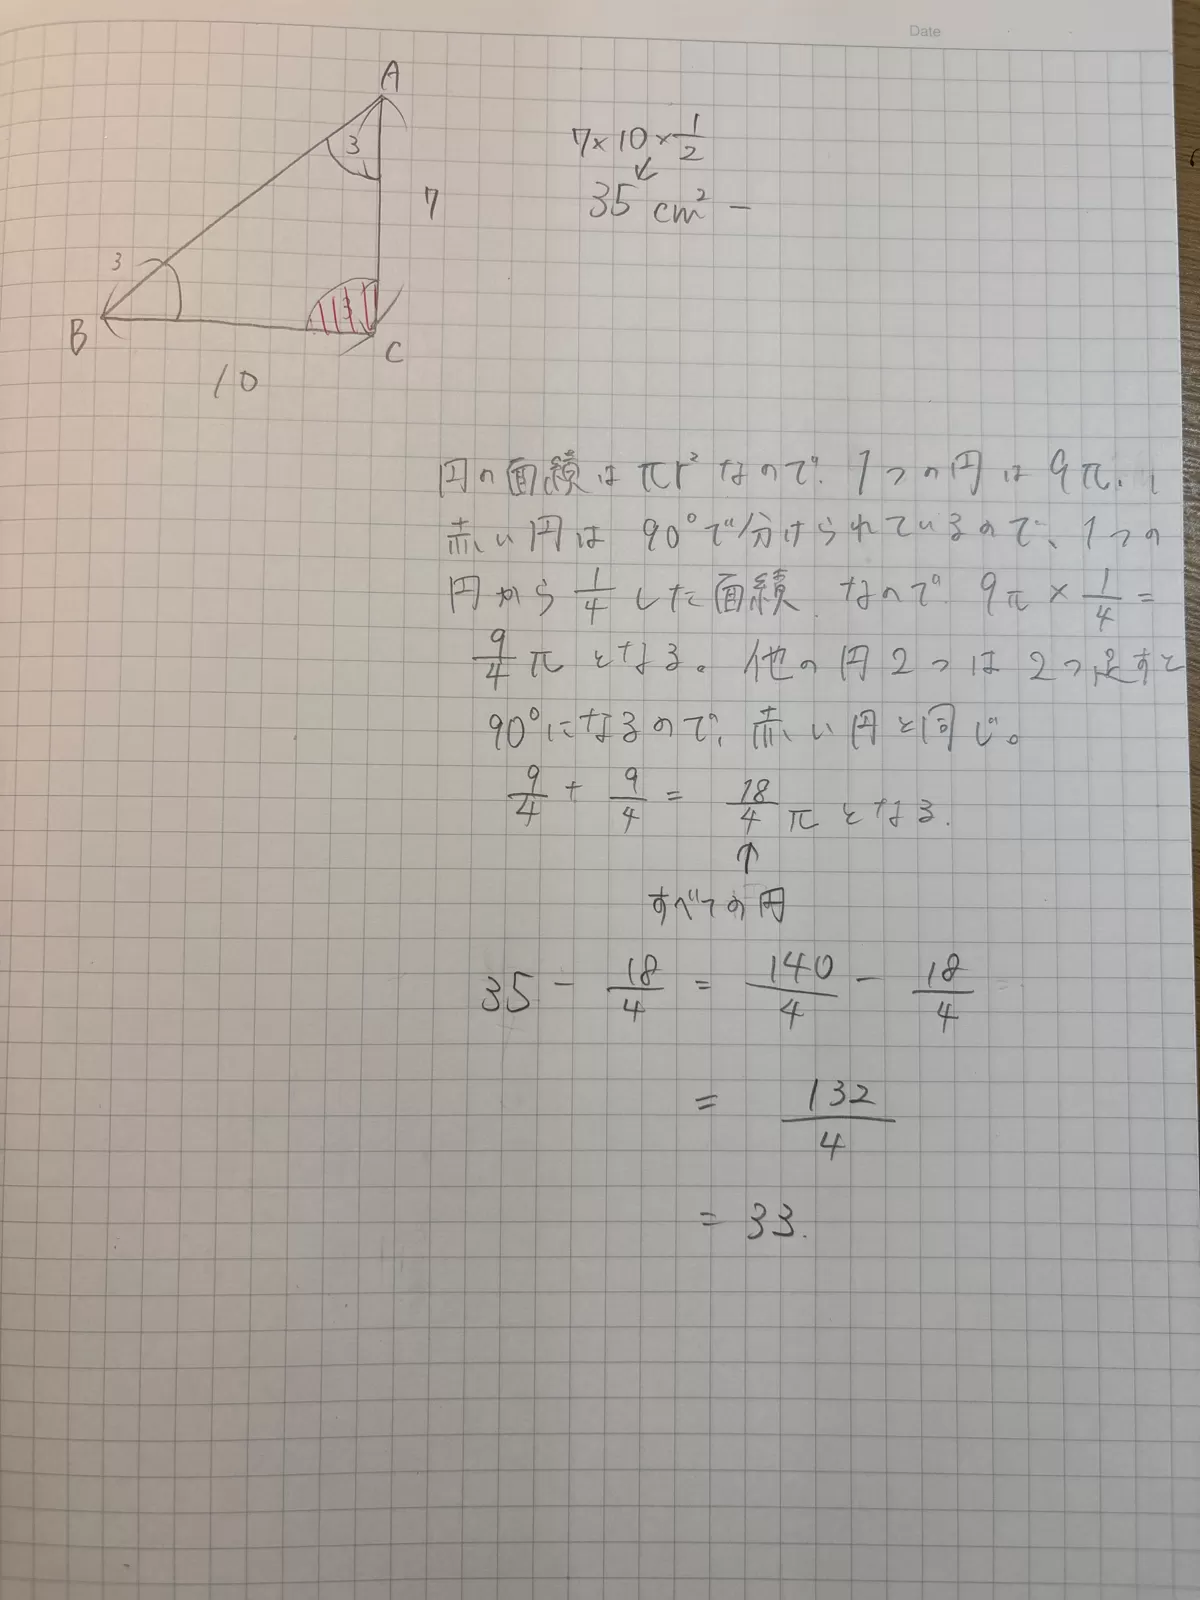 Date
A
3
7
3
3
B
C
10
7×10×1/2
35 cm² –
円の面積はπr²なので、1つの円は9π、
赤い円は90°で分けられているので、1つの
円から1/4した面積 なので 9π×1/4=
9/4πとなる。他の円2つは2つ足すと
90°になるので、赤い円と同じ。
9/4 + 9/4 = 18/4πとなる.
↑
すべての円
35 - 18/4 = 140/4 - 18/4
= 132/4
= 33.